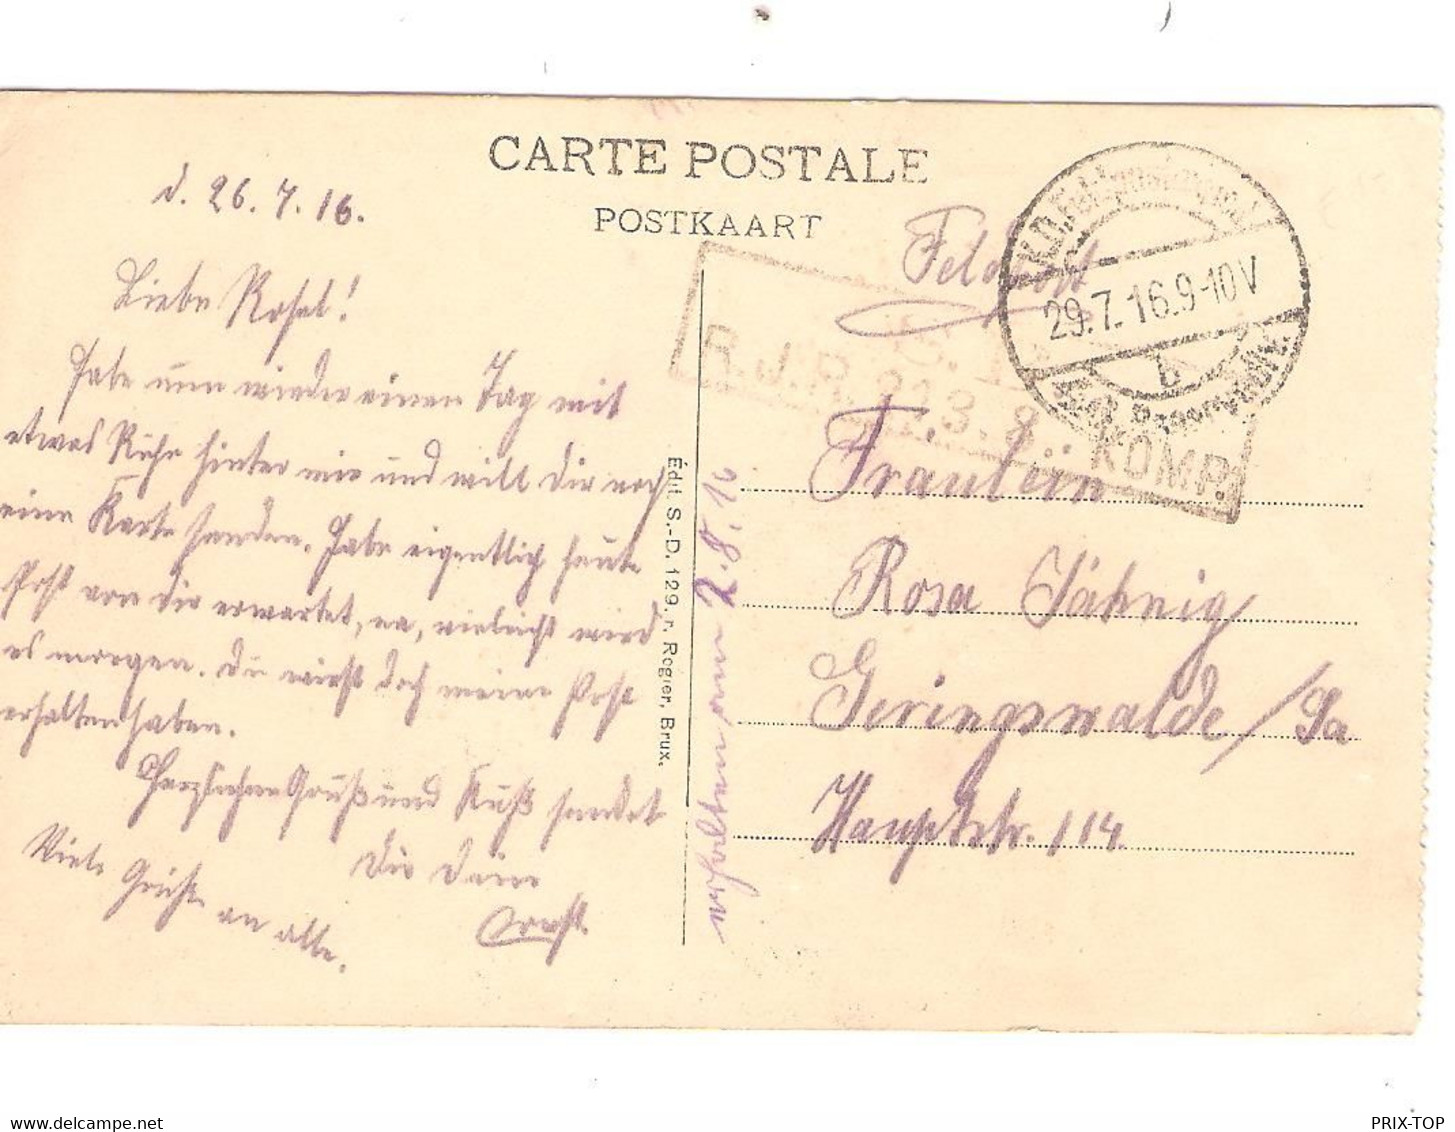 CARTE POSTALE
POSTKAART
d. 26.7.16.
Liebe Rosel!
Habe nun wieder einen Tag mit
etwas Ruhe hinter mir und will Dir noch
eine Karte senden. Habe eigentlich heute
Post von Dir erwartet, na, vielleicht wird
es morgen. Du wirst doch meine Post
erhalten haben.
Herzlichen Gruß und Kuß sendet
Dir Dein
Ernst.
Viele Grüße an alle.
Édit. S.-D. 129. r. Rogier, Brux.
2.8.16
Feldpost
K.D. Feld
29.7.16.9-10V
b
R.J.R.
KOMP.
Fräulein
Rosa Jähnig
Geringswalde/Sa
Hauptstr. 114.
PRIX-TOP
delcampe.net